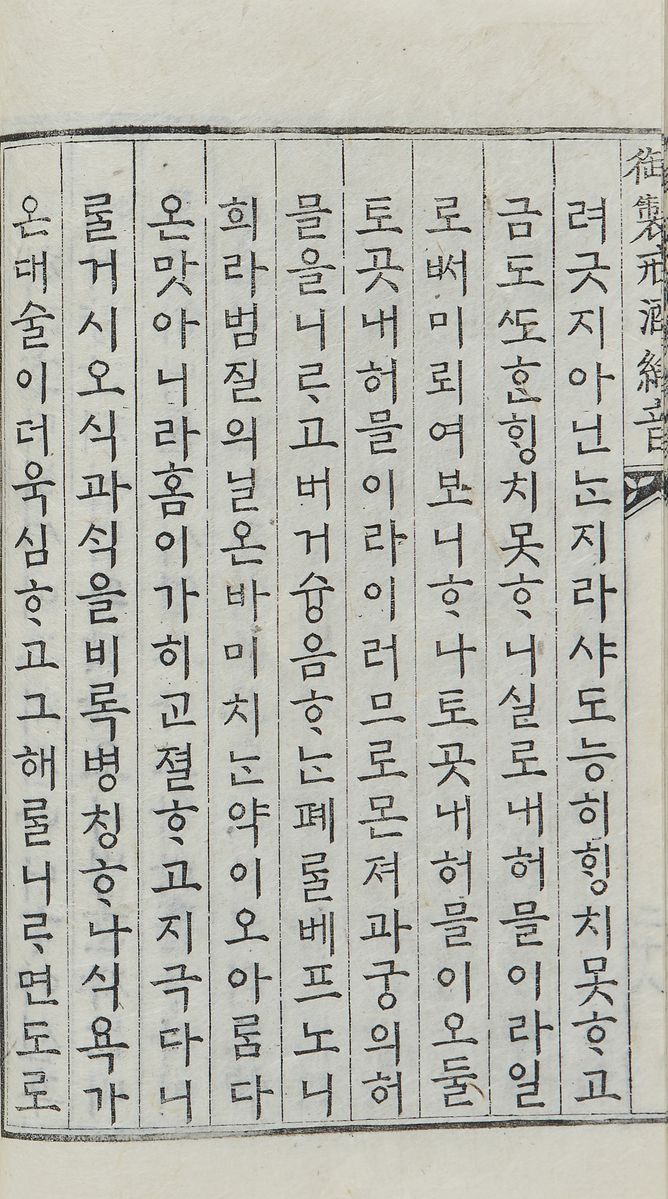 御製戒酒綸音
려긋지아닌ᄂᆞᆫ지라샤도능히ᄒᆡᆼ치못ᄒᆞ고
금도ᄯᅩᄒᆞᆫᄒᆡᆼ치못ᄒᆞ니실로내허믈이라일
로ᄡᅥ미뢰여보니ᄒᆞ나토곳내허믈이오둘
토곳내허믈이라이러므로몬져과궁의허
믈을니ᄅᆞ고버거슝음ᄒᆞᄂᆞᆫ폐ᄅᆞᆯ베프노니
희라범질의닐온바미치ᄂᆞᆫ약이오아ᄅᆞᆷ다
온맛아니라홈이가히고졀ᄒᆞ고지극다니
ᄅᆞᆯ거시오식과ᄉᆡᆨ을비록병칭ᄒᆞ나식욕가
온대술이더욱심ᄒᆞ고그해ᄅᆞᆯ니ᄅᆞ면도로